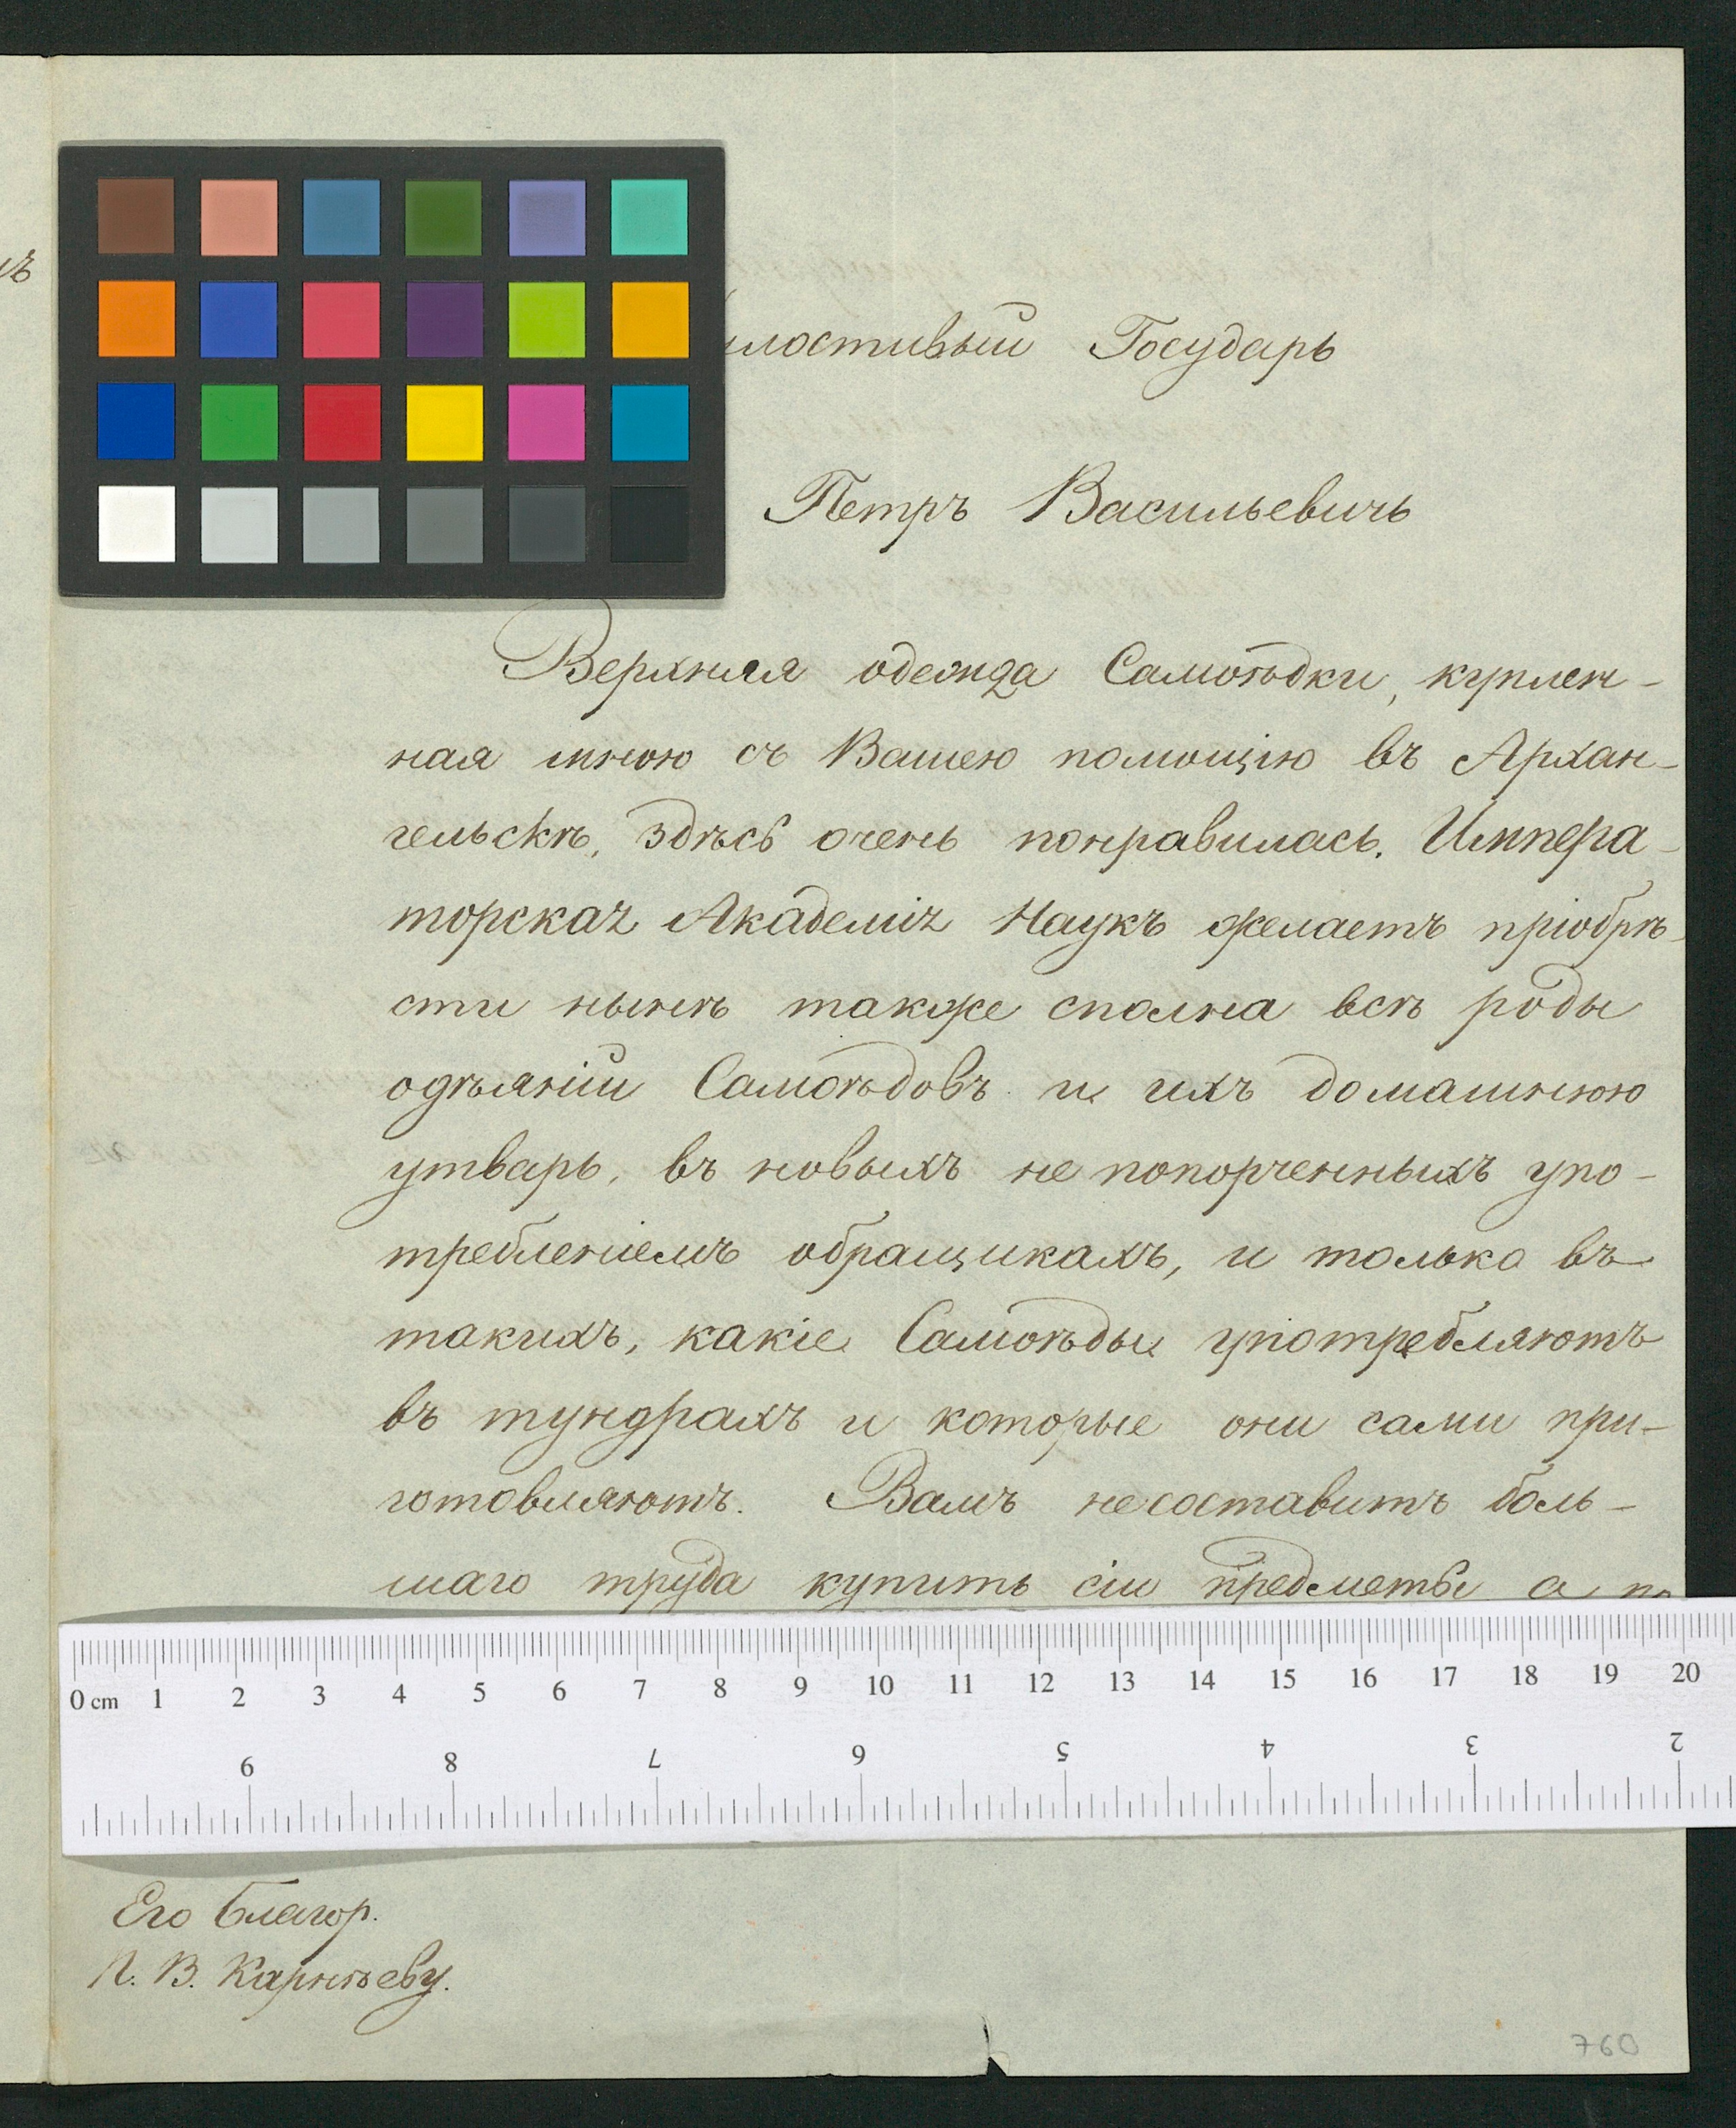 Милостивый Государь
Петръ Васильевичь
Верхняя одежда Самоѣдки, куплен-
ная мною съ Вашею помощію въ Архан-
гельскѣ, здѣсь очень понравилась. Импера-
торская Академія Наукъ желаетъ пріобрѣ-
сти нынѣ также сполна всѣ роды
одѣяній Самоѣдовъ и ихъ домашнюю
утварь, въ новыхъ не попорченныхъ упо-
требленіемъ обращикахъ, и только въ
такихъ, какіе Самоѣды употребляютъ
въ тундрахъ и которые они сами при-
готовляютъ. Вамъ несоставитъ боль-
шаго труда купить сіи предметы а
0 cm 1 2 3 4 5 6 7 8 9 10 11 12 13 14 15 16 17 18 19 20
9 8 7 6 5 4 3 2
Его Благор.
П. В. Карнѣеву.
760